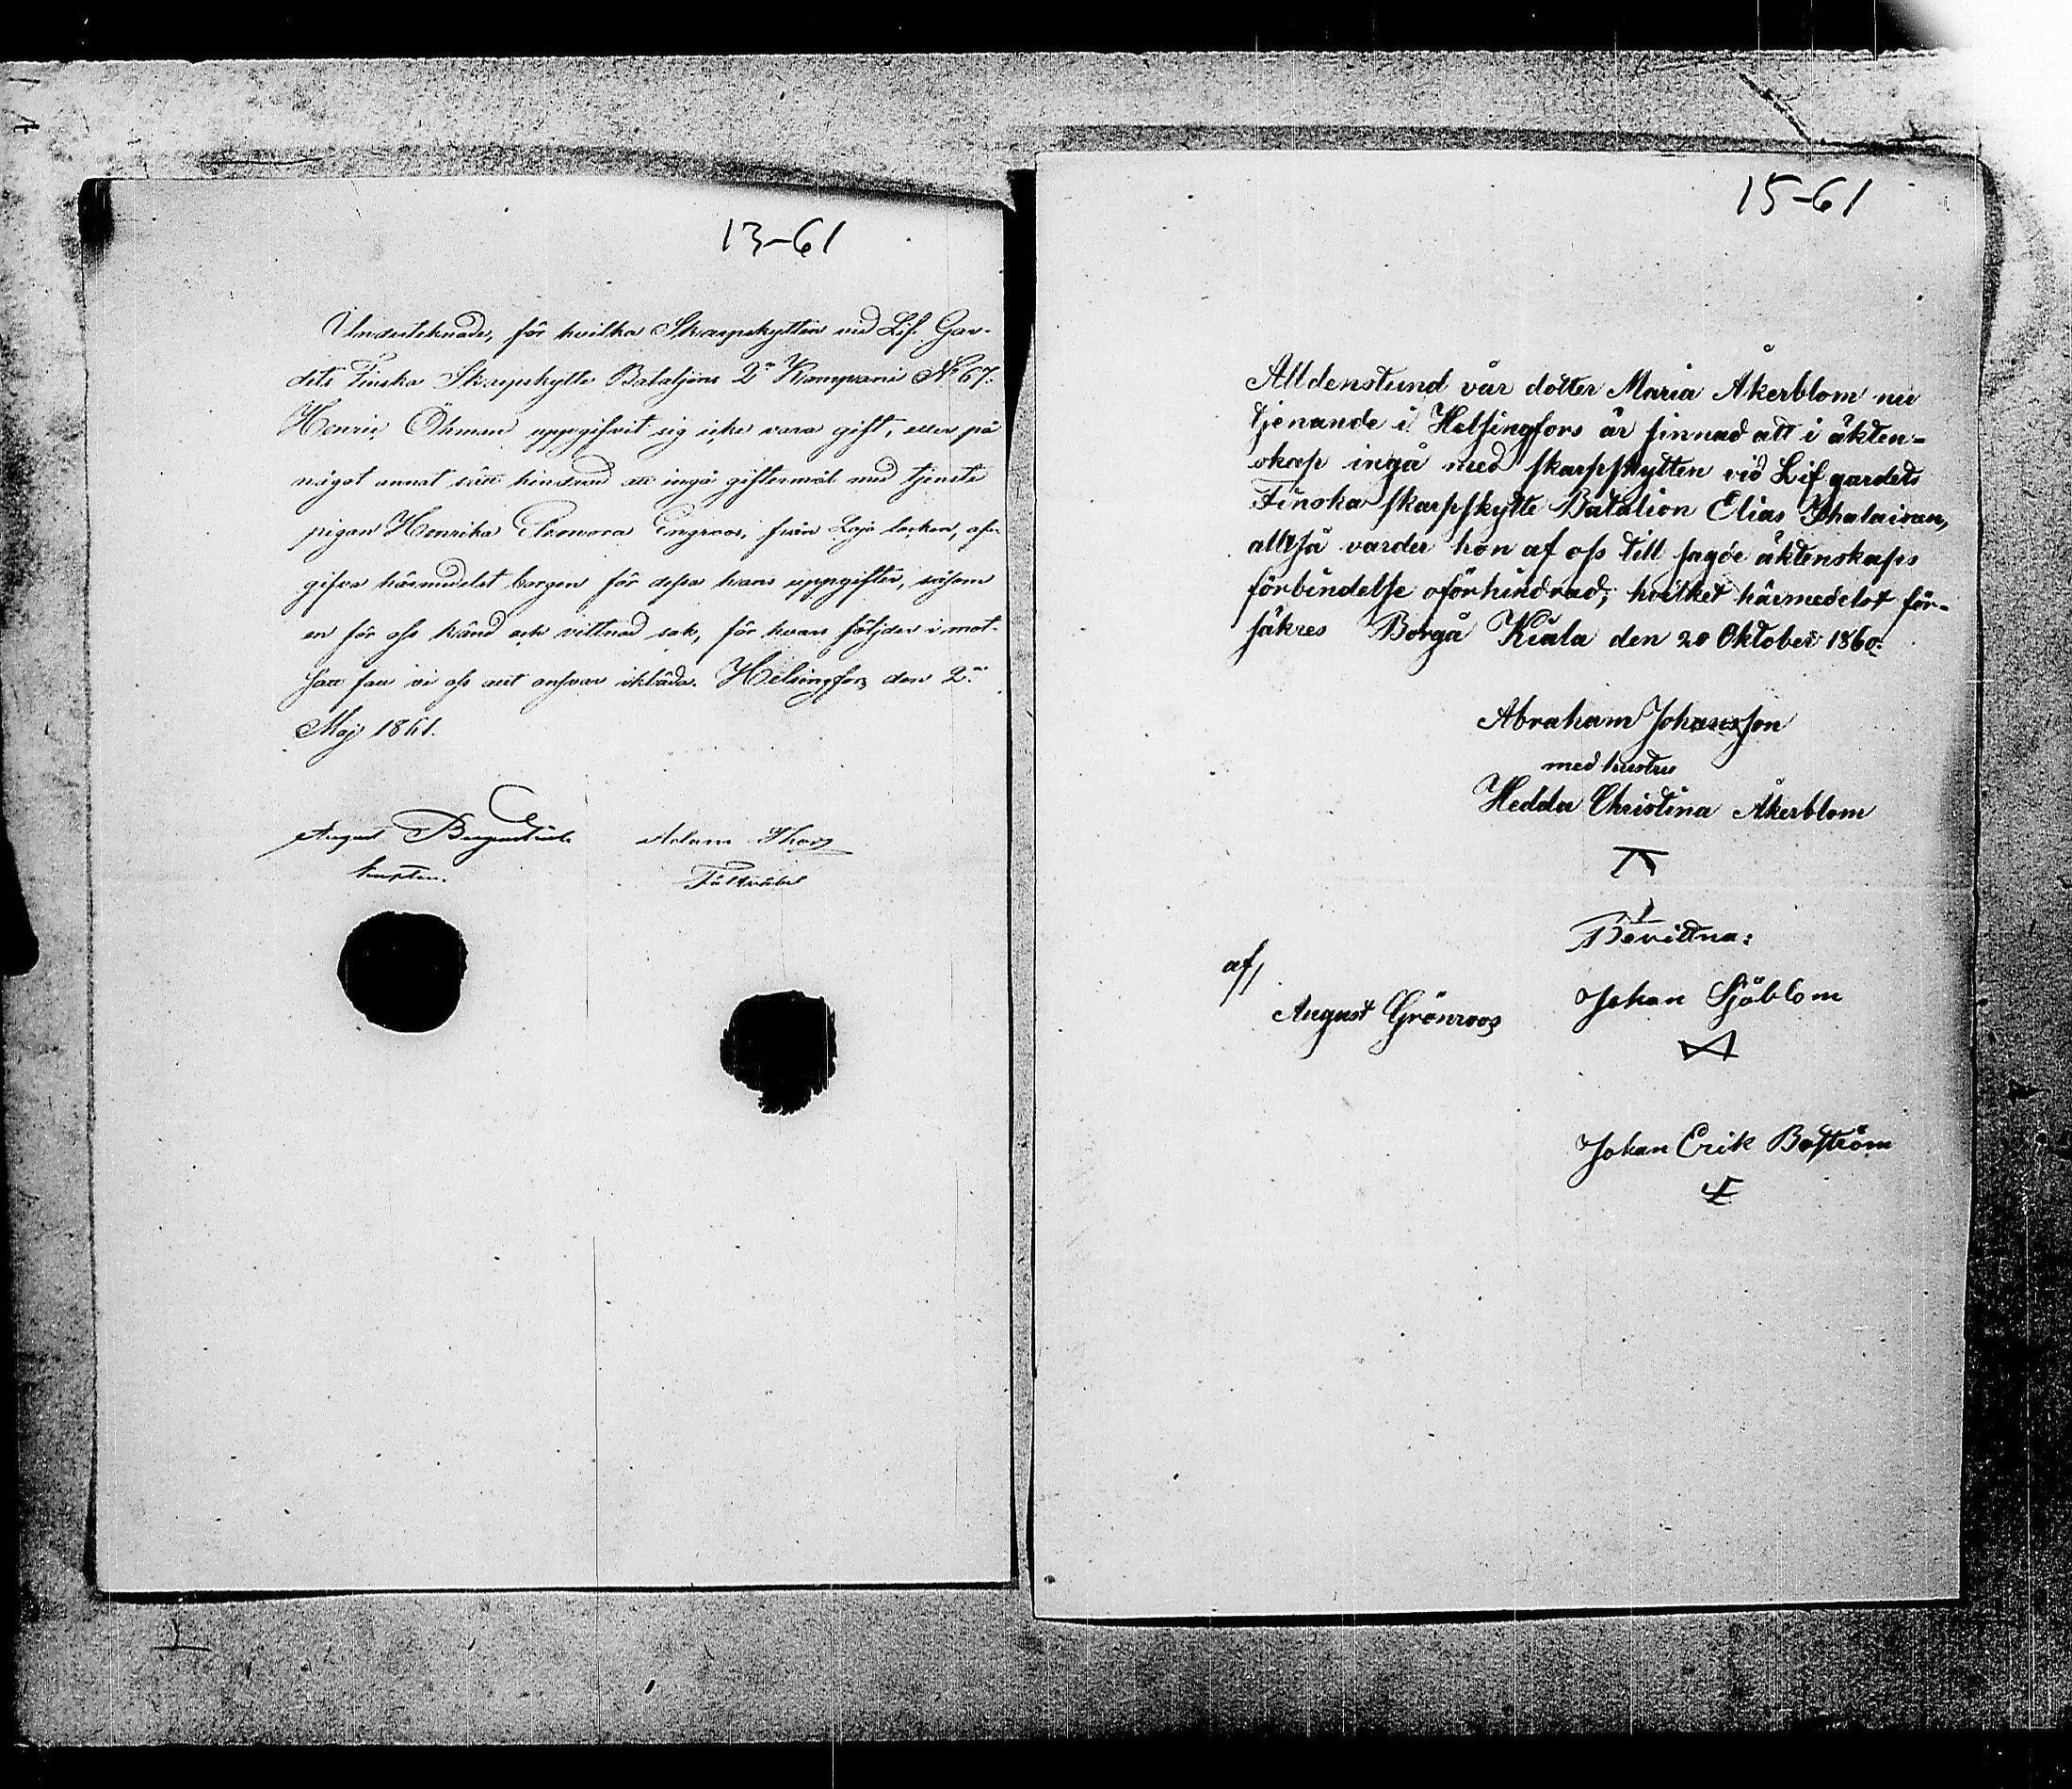 13-61
Undertecknade, för hvilka Skarpskytten vid Lif Gar-
dets Finska Skarpskytte Bataljons 2ª Kompani Nº 67.
Henric Öhman uppgifvit sig icke vara gift, eller på
något annat sätt hindrad att ingå giftermål med tjenste
pigan Henrika Eleonora Engroos, från Lojo socken, af-
gifva härmedelst borgen för dessa hans uppgifter, såsom
en för oss känd och vittnad sak, för hvars följder i mot-
satt fall vi oss allt ansvar ikläda. Helsingfors den 2ª
Maj 1861.
August
Kapten.
Adam
Fältväbel
15-61
Alldenstund vår dotter Maria Åkerblom nu
tjenande i Helsingfors är sinnad att i äkten-
skap ingå med skarpskytten vid Lif gardets
Finska skarpskytte Batalion Elias
alltså varder hon af oss till sagde äktenskaps
förbindelse oförhindrad; hvilket härmedelst för-
säkres Borgå Kiala den 20 Oktober 1860.
Abraham Johansson
med hustru
Hedda Christina Åkerblom
Bevittna:
af,
Johan Sjöblom
August Grönroos
Johan Erik Boström